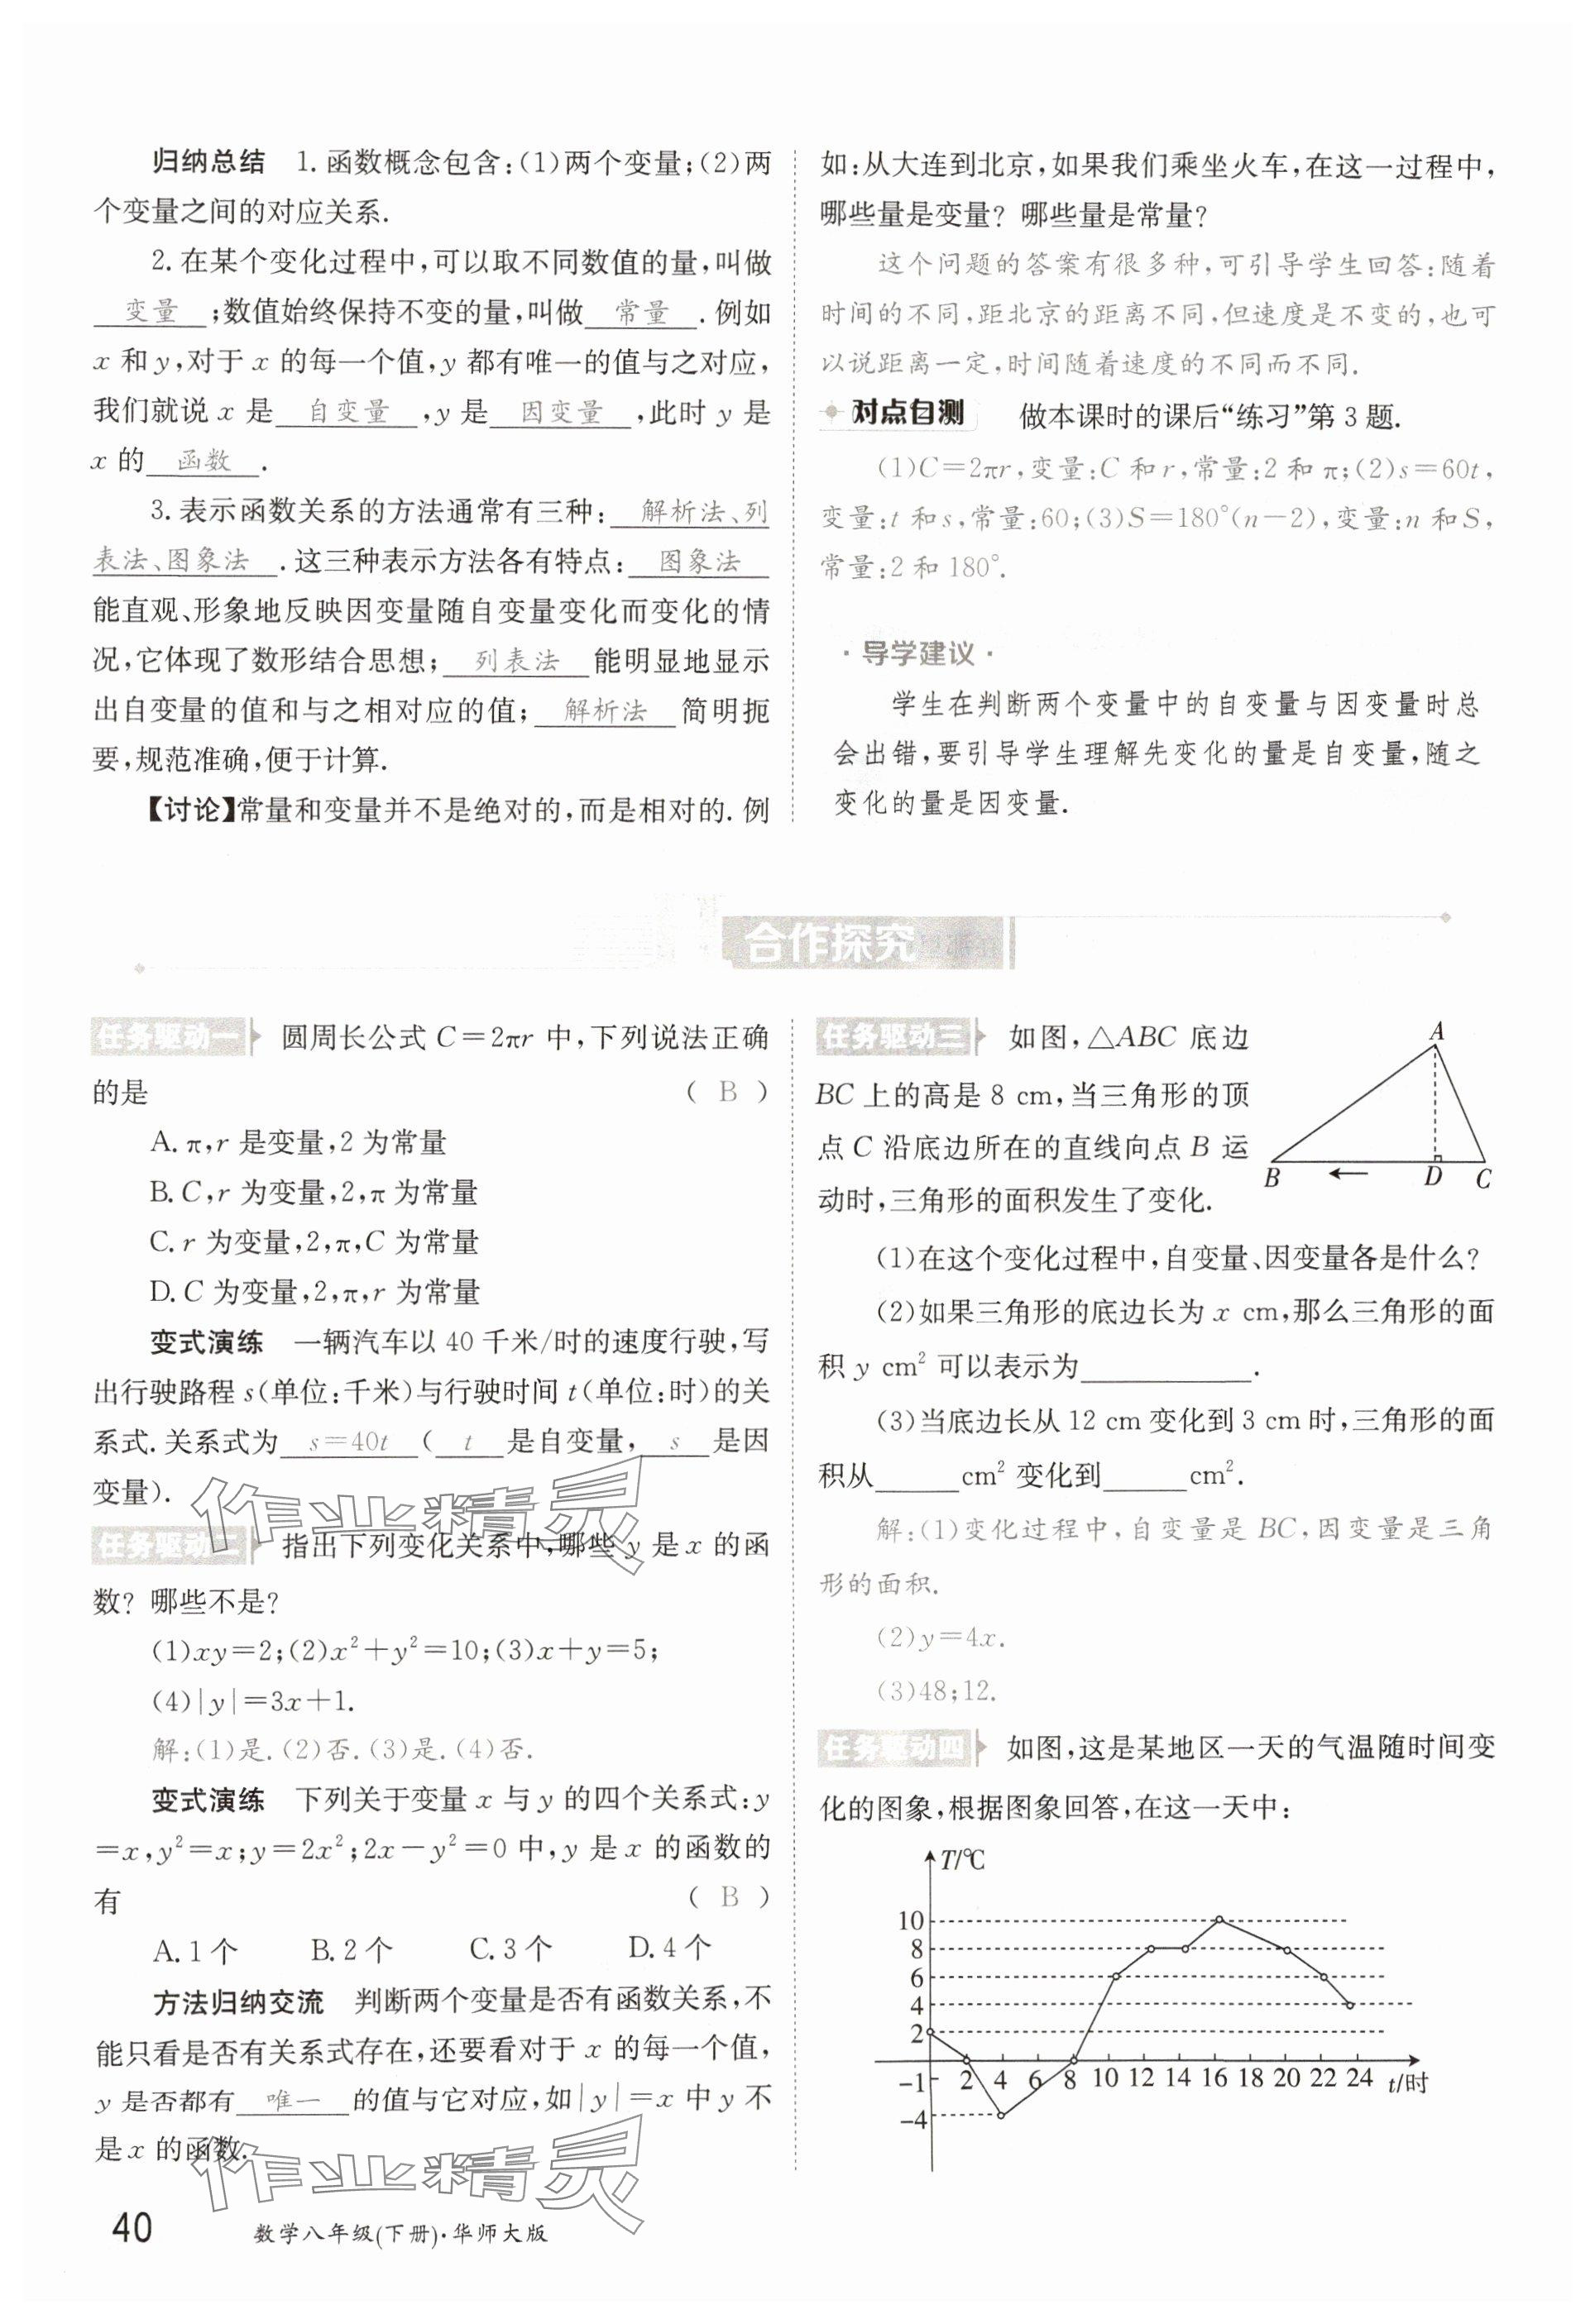 归纳总结 1.函数概念包含:(1)两个变量;(2)两
个变量之间的对应关系.
2.在某个变化过程中,可以取不同数值的量,叫做
变量;数值始终保持不变的量,叫做 常量 .例如
x 和 y,对于 x 的每一个值,y 都有唯一的值与之对应,
我们就说 x 是 自变量 ,y 是 因变量 ,此时 y 是
x 的 函数 .
3.表示函数关系的方法通常有三种: 解析法、列
表法、图象法 .这三种表示方法各有特点: 图象法
能直观、形象地反映因变量随自变量变化而变化的情
况,它体现了数形结合思想; 列表法 能明显地显示
出自变量的值和与之相对应的值; 解析法 简明扼
要,规范准确,便于计算.
【讨论】常量和变量并不是绝对的,而是相对的.例
如:从大连到北京,如果我们乘坐火车,在这一过程中,
哪些量是变量? 哪些量是常量?
这个问题的答案有很多种,可引导学生回答:随着
时间的不同,距北京的距离不同,但速度是不变的,也可
以说距离一定,时间随着速度的不同而不同.
对点自测 做本课时的课后“练习”第 3 题.
(1)C=2πr,变量:C 和 r,常量:2 和 π;(2)s=60t,
变量:t 和 s,常量:60;(3)S=180°(n-2),变量:n 和 S,
常量:2 和 180°.
·导学建议·
学生在判断两个变量中的自变量与因变量时总
会出错,要引导学生理解先变化的量是自变量,随之
变化的量是因变量.
合作探究
任务驱动一 圆周长公式 C=2πr 中,下列说法正确
的是 ( B )
A.π,r 是变量,2 为常量
B.C,r 为变量,2,π 为常量
C.r 为变量,2,π,C 为常量
D.C 为变量,2,π,r 为常量
变式演练 一辆汽车以 40 千米/时的速度行驶,写
出行驶路程 s(单位:千米)与行驶时间 t(单位:时)的关
系式.关系式为 s=40t ( t 是自变量, s 是因
变量).
任务驱动二 指出下列变化关系中,哪些 y 是 x 的函
数? 哪些不是?
(1)xy=2;(2)x²+y²=10;(3)x+y=5;
(4)|y|=3x+1.
解:(1)是.(2)否.(3)是.(4)否.
变式演练 下列关于变量 x 与 y 的四个关系式:y
=x,y²=x;y=2x²;2x-y²=0 中,y 是 x 的函数的
有 ( B )
A.1个 B.2个 C.3个 D.4个
方法归纳交流 判断两个变量是否有函数关系,不
能只看是否有关系式存在,还要看对于 x 的每一个值,
y 是否都有 唯一 的值与它对应,如|y|=x 中 y 不
是 x 的函数.
任务驱动三 如图,△ABC 底边
BC 上的高是 8 cm,当三角形的顶
点 C 沿底边所在的直线向点 B 运
动时,三角形的面积发生了变化.
A
B D C
(1)在这个变化过程中,自变量、因变量各是什么?
(2)如果三角形的底边长为 x cm,那么三角形的面
积 y cm² 可以表示为______.
(3)当底边长从 12 cm 变化到 3 cm 时,三角形的面
积从______cm² 变化到______cm².
解:(1)变化过程中,自变量是 BC,因变量是三角
形的面积.
(2)y=4x.
(3)48;12.
任务驱动四 如图,这是某地区一天的气温随时间变
化的图象,根据图象回答,在这一天中:
T/℃
10
8
6
4
2
-1 2 4 6 8 10 12 14 16 18 20 22 24 t/时
-4
作业精灵
作业精灵
40 数学八年级(下册)·华师大版